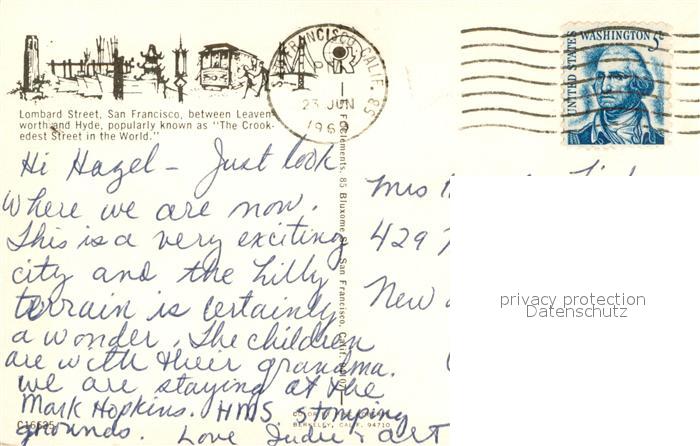 Lombard Street, San Francisco, between Leaven-
worth and Hyde, popularly known as "The Crook-
edest Street in the World."
Hi Hazel - Just look
where we are now.
This is a very exciting
city and the hilly
terrain is certainly
a wonder. The children
are with their grandma.
we are staying at the
Mark Hopkins. HMS stomping
grounds. Love Judie & Art
C16625
SAN FRANCISCO, CALIF.
PM
23 JUN
196
85 Bluxome St., San Francisco, Calif.
BERKELEY, CALIF. 94710
UNITED STATES
WASHINGTON 5¢
Mrs
429
New
privacy protection
Datenschutz